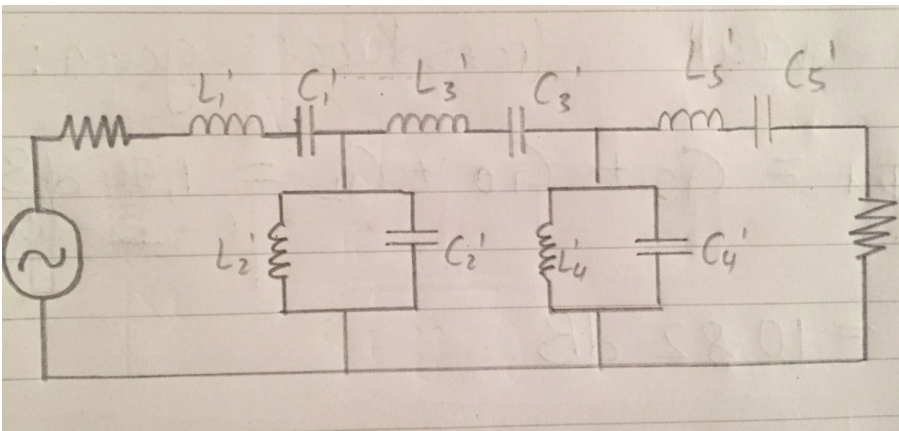 L₁' C₁' L₃' C₃' L₅' C₅'
L₂' C₂' L₄' C₄'